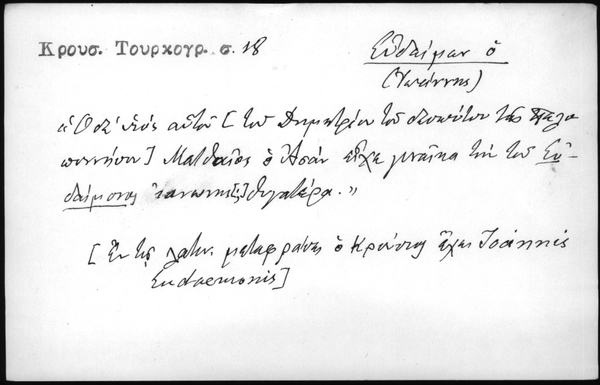 Κρουσ. Τουρκογρ. σ. 18
Εὐδαίμων ὁ
(Ἰωάννης)
«Ὁ δὲ υἱός αὐτοῦ [τοῦ Δημητρίου τοῦ δεσπότου τῆς Πελο
ποννήσου] Ματθαῖος ὁ Ἀσάν εἶχε γυναῖκα τὴν τοῦ Εὐ-
δαίμονος ἰανωνις[ς] θυγατέρα.»
[Ἐν τῇ λατιν. μεταφράσει ὁ Κρούσιος ἔχει Ioánnis
Eudaemonis]